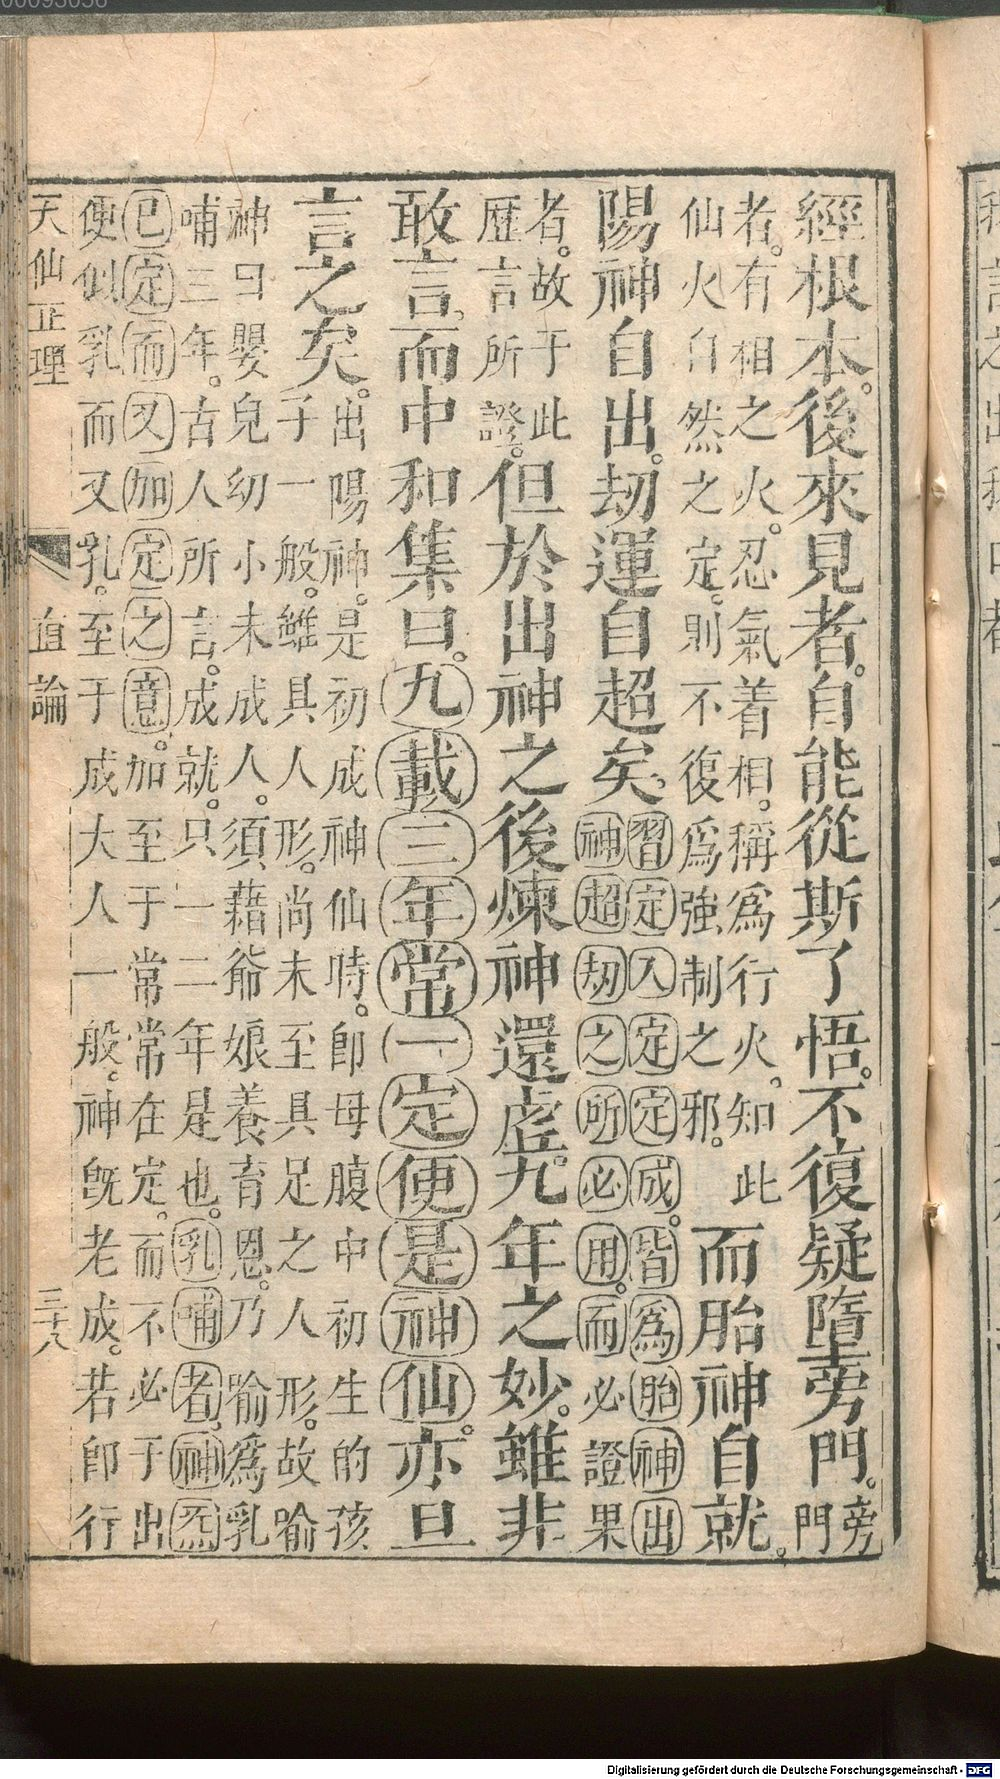 經根本。後來見者。自能從斯了悟。不復疑墮旁門。旁門
者。有相之火。忍氣着相。稱爲行火。知此
仙火自然之定。則不復爲強制之邪。
而胎神自就。
陽神自出。劫運自超矣。習定入定定成。皆爲胎神出
神超劫之所必用。而必證果
者。故于此
歷言所證。
但於出神之後。煉神還虛。九年之妙。雖非
敢言。而中和集曰。九載三年常一定。便是神仙。亦旦
言之矣。
出陽神。是初成神仙時。卽母腹中初生的孩
子一般。雖具人形。尚未至具足之人形。故喻
神曰嬰兒幼小未成人。須藉爺娘養育恩。乃喻爲乳
哺三年。古人所言。成就。只一二年是也。乳哺者。神炁
已定而又加定之意。加至于常常在定。而不必于出
便似乳而又乳。至于成大人一般。神旣老成。若卽行
天仙正理
直論
三十八
00093056
Digitalisierung gefördert durch die Deutsche Forschungsgemeinschaft - DFG